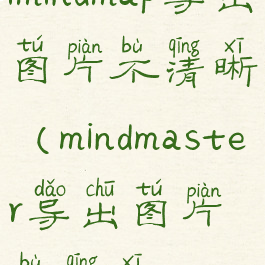 mindmap导出
tú piàn bù qīng xī
图片不清晰
(mindmaste
dǎo chū tú piàn
r导出图片
bù qīng xī